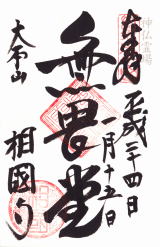 神仏霊場
奉拝
平成二十四年
一月十五日
無畏堂
大本山
相國寺